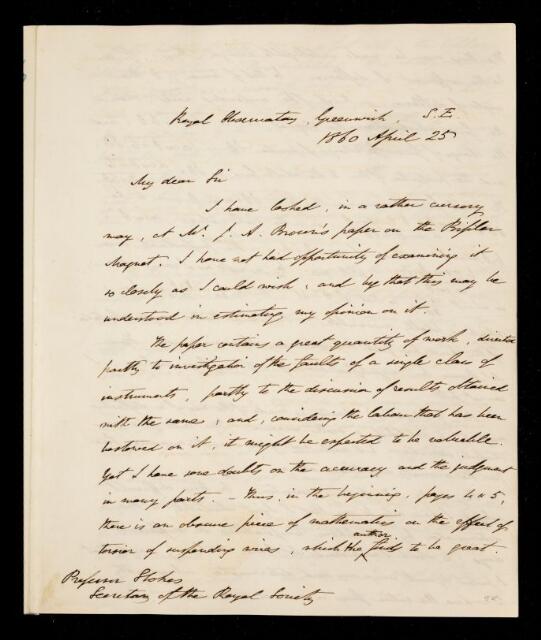 Royal Observatory, Greenwich, S.E.
1860 April 25
My dear Sir
I have looked, in a rather cursory
way, at Mr. J. A. Broun's paper on the Bifilar
Magnet. I have not had opportunity of examining it
so closely as I could wish; and beg that this may be
understood in estimating my opinion on it.
The paper contains a great quantity of work, directed
partly to investigation of the faults of a single class of
instruments, partly to the discussion of results obtained
with the same; and, considering the labour that has been
bestowed on it, it might be expected to be valuable.
Yet I have some doubts on the accuracy and the judgment
in many parts. – Thus, in the beginning, pages 4 & 5,
there is an obscure piece of mathematics on the effect of
torsion of suspending wires, which the author finds to be great.
Professor Stokes
Secretary of the Royal Society